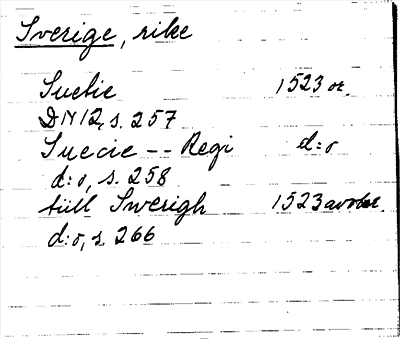 Sverige, rike
Suetie 1523 or.
DN 12, s. 257
Suecie -- Regi d:o
d:o, s. 258
till Swerigh 1523 avskr.
d:o, s. 266